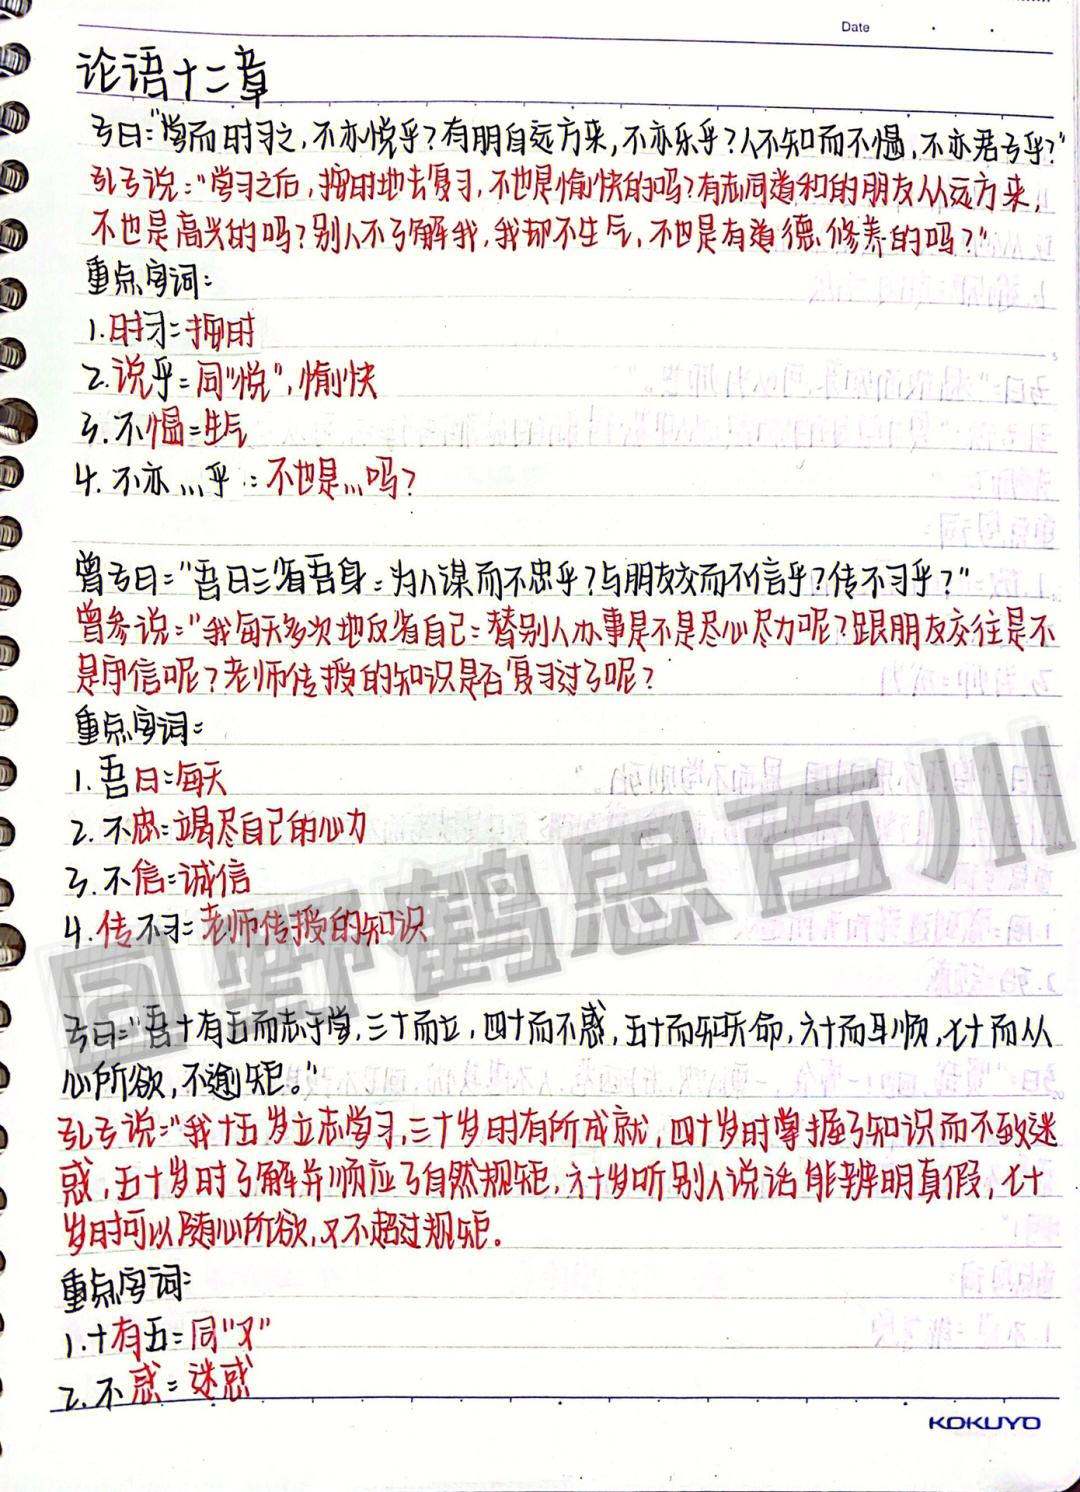 Date
论语十二章
子曰:"学而时习之,不亦悦乎?有朋自远方来,不亦乐乎?人不知而不愠,不亦君子乎?"
孔子说:"学习之后,按时地去复习,不也是愉快的吗?有志同道和的朋友从远方来,
不也是高兴的吗?别人不了解我,我却不生气,不也是有道德修养的吗?"
重点字词:
1.时习:按时
2.说乎:同"悦",愉快
3.不愠:生气
4.不亦…乎:不也是…吗?
曾子曰:"吾日三省吾身:为人谋而不忠乎?与朋友交而不信乎?传不习乎?"
曾参说:"我每天多次地反省自己:替别人办事是不是尽心尽力呢?跟朋友交往是不
是守信呢?老师传授的知识是否复习过了呢?
重点字词:
1.吾日:每天
2.不忠:竭尽自己的心力
3.不信:诚信
4.传不习:老师传授的知识
回野鹤思百川
子曰:"吾十有五而志于学,三十而立,四十而不惑,五十而知天命,六十而耳顺,七十而从
心所欲,不逾矩。"
孔子说:"我十五岁立志学习,三十岁时有所成就,四十岁时掌握了知识而不致迷
惑,五十岁时了解并顺应了自然规矩,六十岁听别人说话能辨明真假,七十
岁时可以随心所欲,又不超过规矩.
重点字词:
1.十有五:同"又"
2.不惑:迷惑
KOKUYO